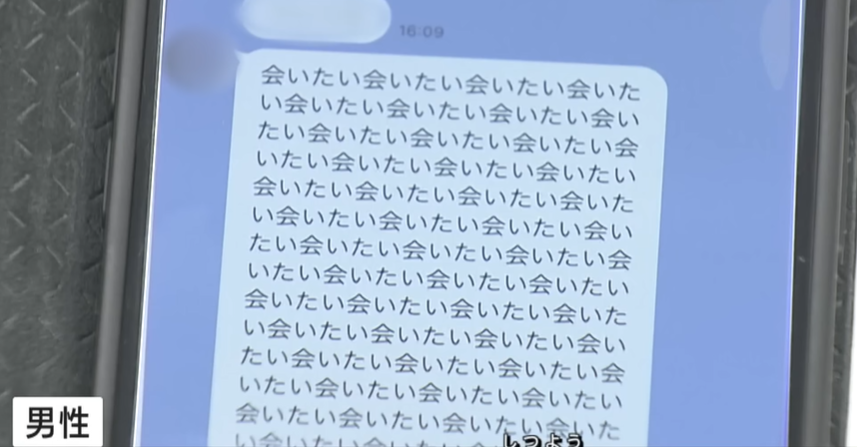 16:09
会いたい会いたい会いたい会いた
い会いたい会いたい会いたい会い
たい会いたい会いたい会いたい会
いたい会いたい会いたい会いたい
会いたい会いたい会いたい会いた
い会いたい会いたい会いたい会い
たい会いたい会いたい会いたい会
いたい会いたい会いたい会いたい
会いたい会いたい会いたい会いた
い会いたい会いたい会いたい会い
たい会いたい会いたい会いたい会
いたい会いたい会いたい会いたい
会いたい会いたい会いたい会いた
い会いたい会いたい
しつよう
男性